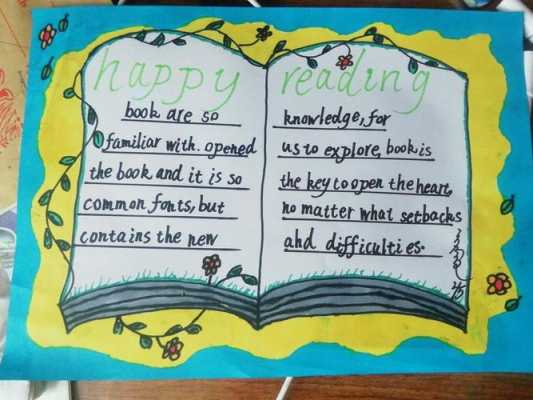 happy reading
book are so
familiar with. opened
the book and it is so
common fonts, but
contains the new
knowledge, for
us to explore, book is
the key to open the heart,
no matter what setbacks
and difficulties.